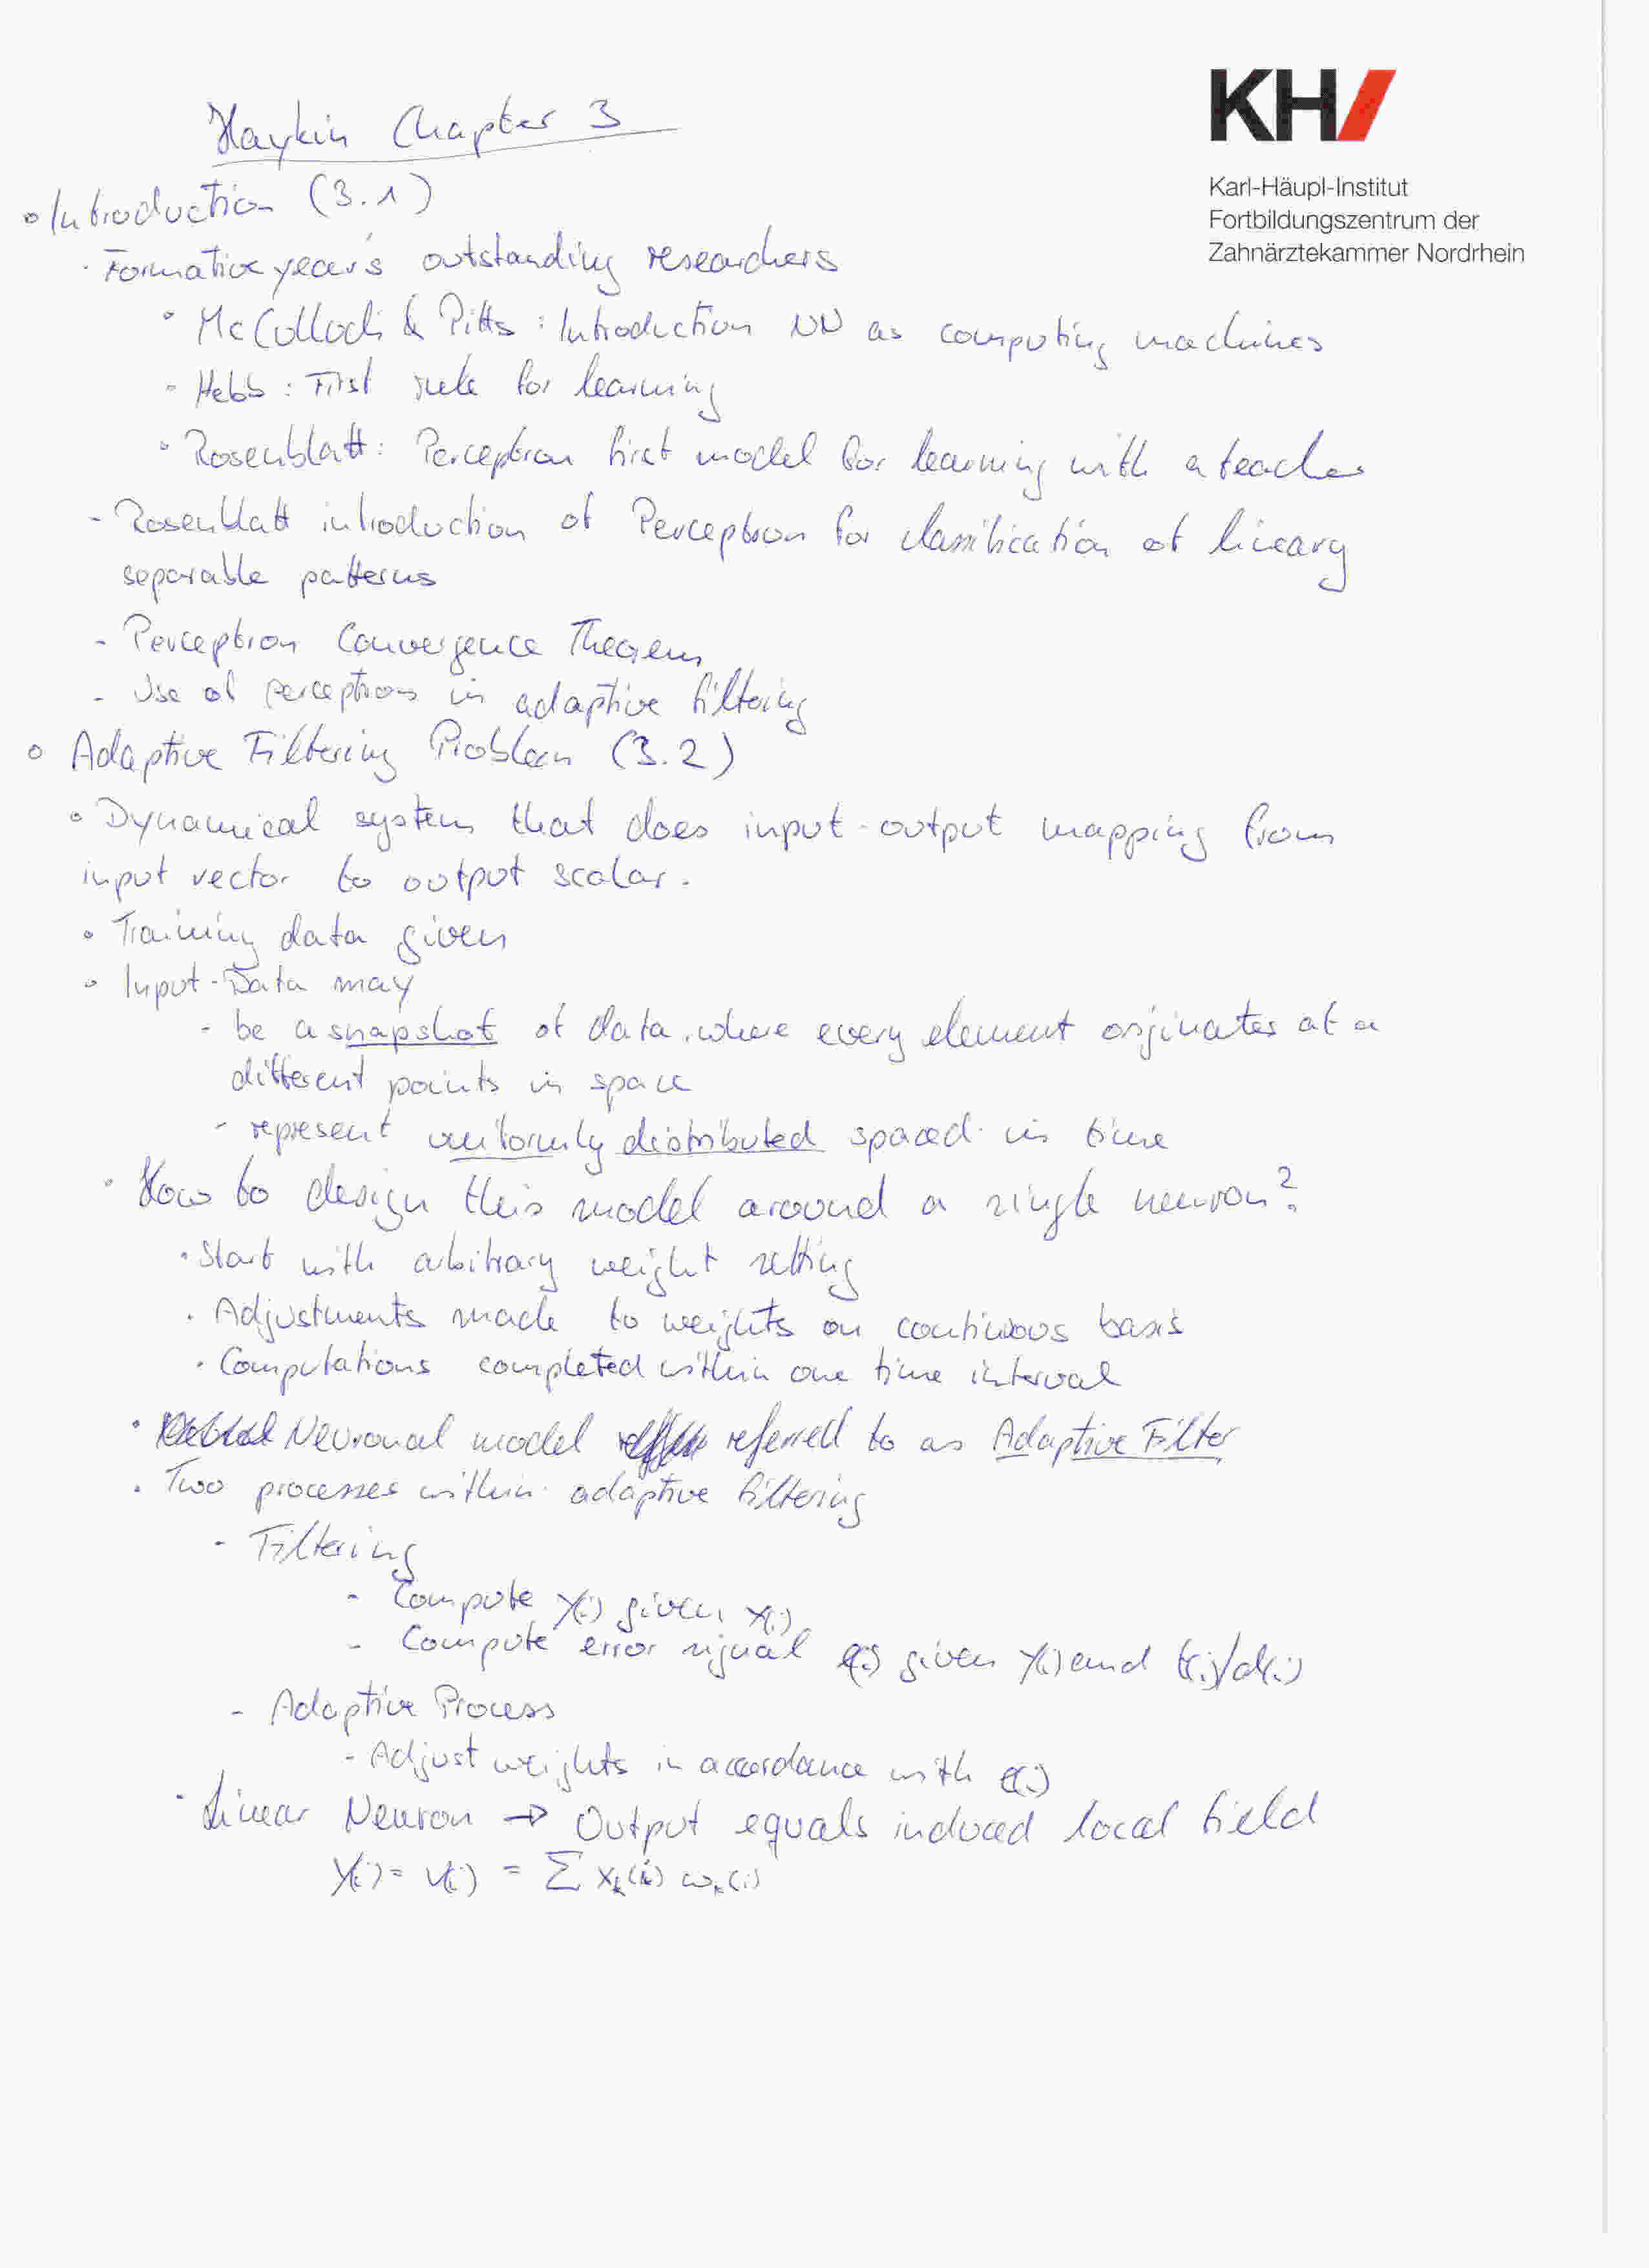 KHI
Karl-Häupl-Institut
Fortbildungszentrum der
Zahnärztekammer Nordrhein
Haykin Chapter 3
Introduction (3.1)
Formative year's outstanding researchers
McCulloch & Pitts : Introduction NN as computing machines
Hebb : First rule for learning
Rosenblatt : Perceptron first model for learning with a teacher
- Rosenblatt introduction of Perceptron for classification of lineary
separable patterns
- Perceptron Convergence Theorem
- Use of perceptron in adaptive filtering
Adaptive Filtering Problem (3.2)
Dynamical system that does input-output mapping from
input vector to output scalar.
Training data given
Input-Data may
- be a snapshot of data, where every element originates at a
different points in space
- represent uniformly distributed spaced in time
How to design this model around a single neuron?
Start with arbitrary weight setting
Adjustments made to weights on continuous basis
Computations completed within one time interval
Neuronal model referred to as Adaptive Filter
Two processes within adaptive filtering
- Filtering
- Compute y(i) given x(i)
- Compute error signal e(i) given y(i) and t(i)/d(i)
- Adaptive Process
- Adjust weights in accordance with e(i)
Linear Neuron → Output equals induced local field
y(i) = v(i) = ∑ xk(i) wk(i)